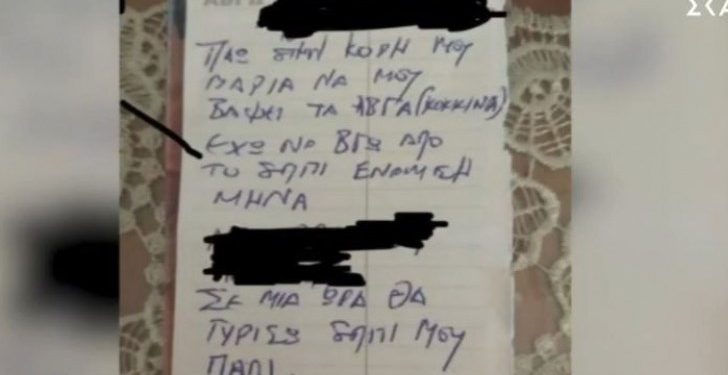 ΣΚΑ
ΠΑΩ ΣΤΗΝ ΚΟΡΗ ΜΟΥ
ΜΑΡΙΑ ΝΑ ΜΟΥ
ΒΑΨΕΙ ΤΑ ΑΒΓΑ (ΚΟΚΚΙΝΑ)
ΕΧΩ ΝΑ ΒΓΩ ΑΠΟ
ΤΟ ΣΠΙΤΙ ΕΝΑΜΙΣΗ
ΜΗΝΑ
ΣΕ ΜΙΑ ΩΡΑ ΘΑ
ΓΥΡΙΣΩ ΣΠΙΤΙ ΜΟΥ
ΠΑΛΙ.